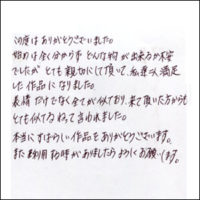 この度はありがとうございました。
始めは全く分からず どんな物が出来るか不安
でしたが とても親切にして頂いて、私達の大満足
した作品になりました。
表情だけでなく全てが似ており、来て頂いた方からも
とても似てるねって言われました。
本当にすばらしい作品をありがとうございます。
また利用する時がありましたらよろしくお願いします。